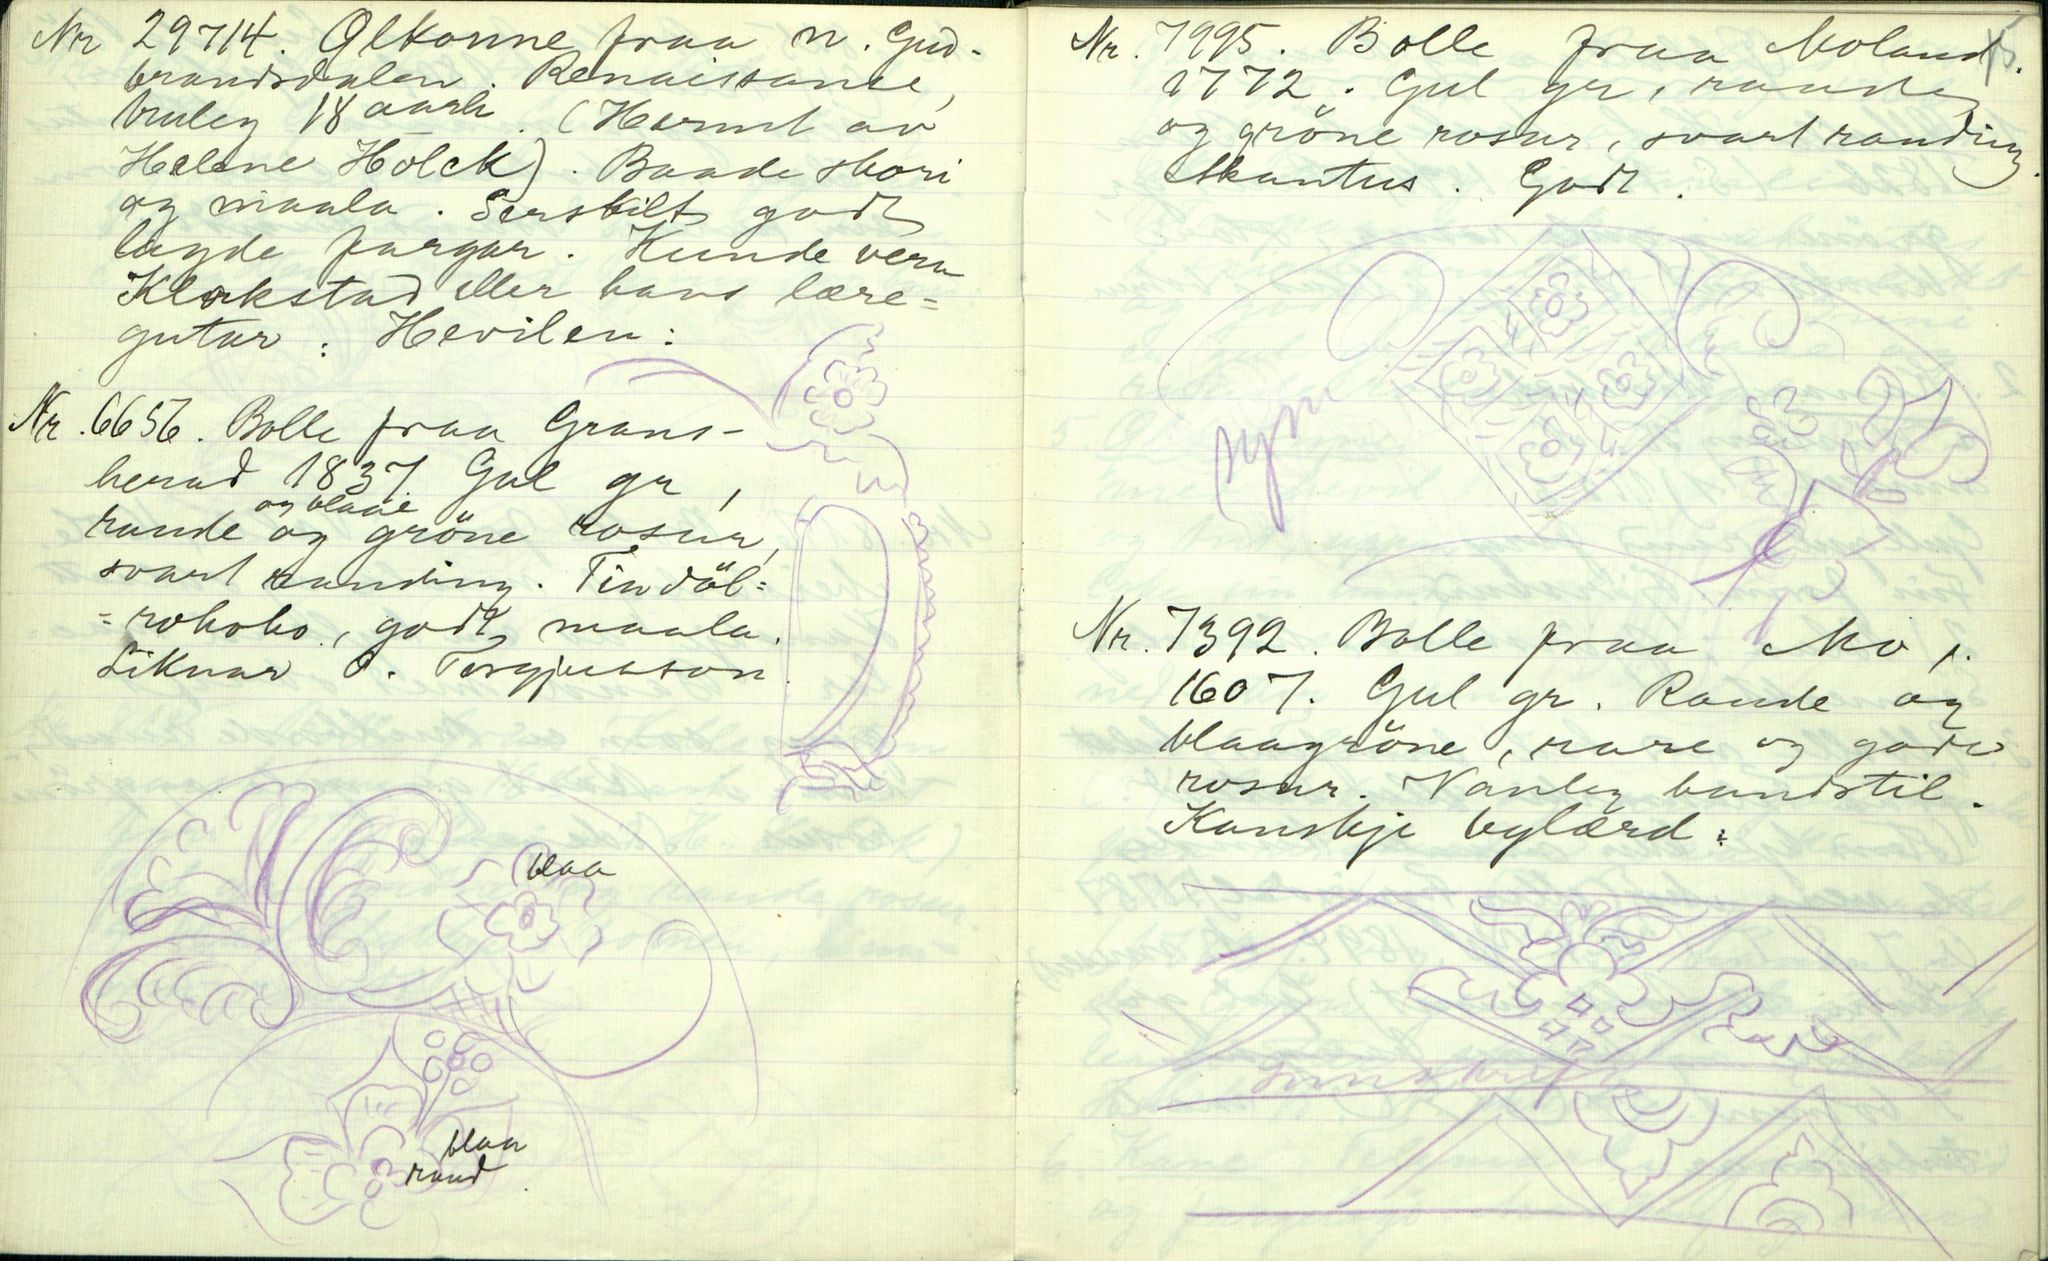 Nr 29714. Ølkanne fraa n. Gud-
brandsdalen. Renaissance,
truleg 18 aarh. (Hermt av
Helene Holck). Baade skori
og maala. Serskilt godt
lagde fargar. Kunde vera
Klokstad eller hans lære=
gutar: Hevilen:
Nr. 6656. Bolle fraa Grans-
herad 1837 Gul gr,
og blaae
raude og gröne rosur,
svart randing. Tindöl=
=rokoko, godt maala.
Liknar O. Torgjusson
blaa
blaa
raud
15
Nr. 7995. Bolle fraa Moland.
1772. Gul gr, raude
og gröne rosur, svart randing.
Akantus. Godt.
sym
Nr. 7392. Bolle fraa Mo p.
1607. Gul gr. Raude og
blaagröne, rare og gode
rosur. Vanleg bandstil.
Kanskje bylærd: